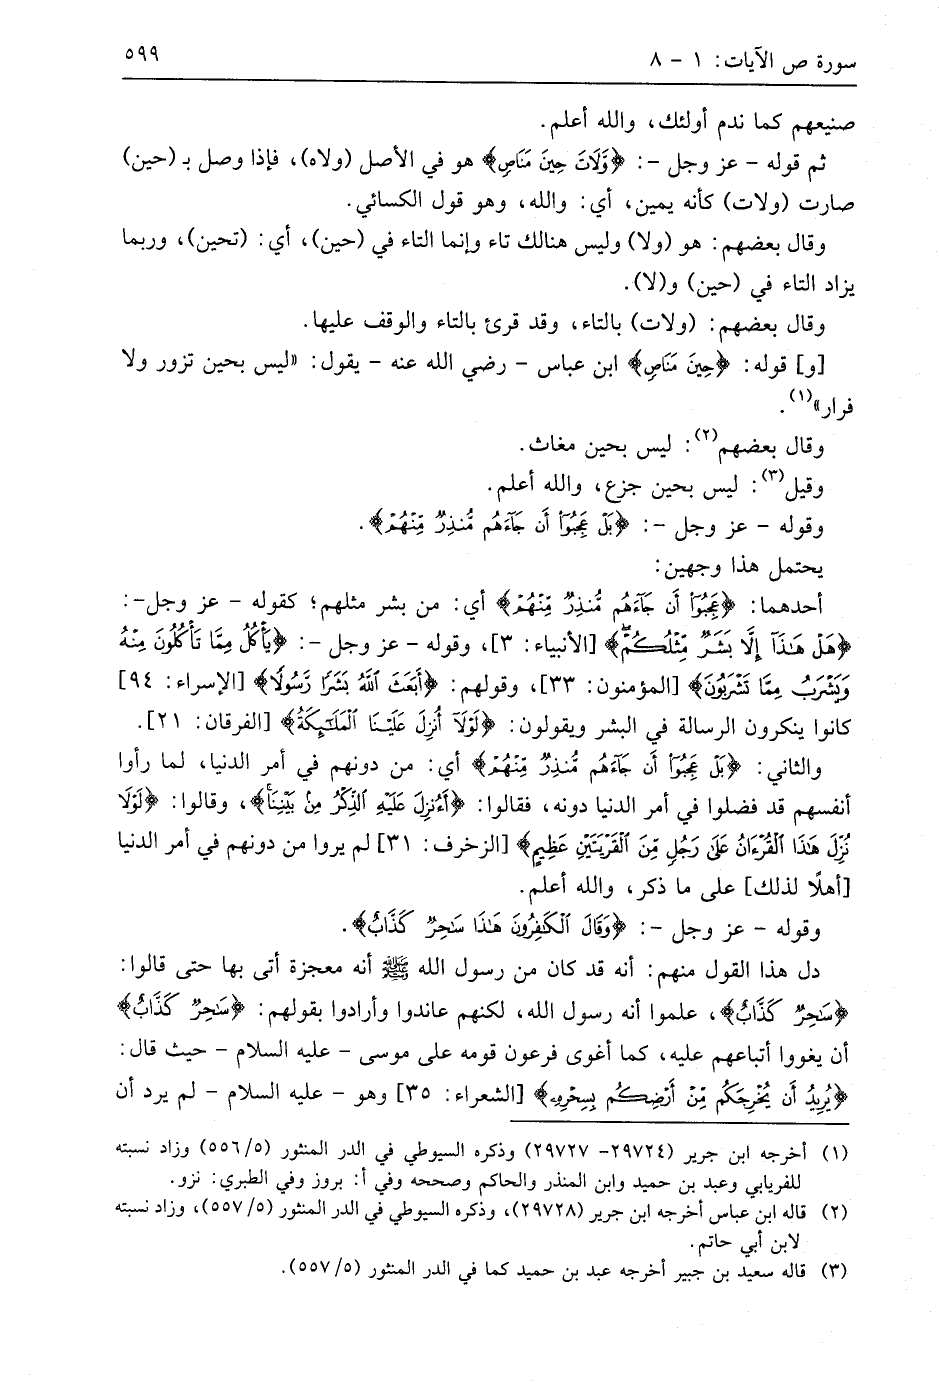 سورة ص الآيات: ١ - ٨
٥٩٩
صنيعهم كما ندم أولئك، والله أعلم.
ثم قوله - عز وجل -: ﴿وَّلَاتَ حِينَ مَنَاصٍ﴾ هو في الأصل (ولاه)، فإذا وصل بـ (حين)
صارت (ولات) كأنه يمين، أي: والله، وهو قول الكسائي.
وقال بعضهم: هو (ولا) وليس هنالك تاء وإنما التاء في (حين)، أي: (تحين)، وربما
يزاد التاء في (حين) و(لا).
وقال بعضهم: (ولات) بالتاء، وقد قرئ بالتاء والوقف عليها.
[و] قوله: ﴿حِينَ مَنَاصٍ﴾ ابن عباس - رضي الله عنه - يقول: «ليس بحين تزور ولا
فرار»(١).
وقال بعضهم(٢): ليس بحين مغاث.
وقيل(٣): ليس بحين جزع، والله أعلم.
وقوله - عز وجل -: ﴿بَلْ عَجِبُوٓاْ أَن جَآءَهُم مُّنذِرٌ مِّنْهُمْ﴾.
يحتمل هذا وجهين:
أحدهما: ﴿عَجِبُوٓاْ أَن جَآءَهُم مُّنذِرٌ مِّنْهُمْ﴾ أي: من بشر مثلهم؛ كقوله - عز وجل-:
﴿هَلْ هَٰذَآ إِلَّا بَشَرٌ مِّثْلُكُمْ﴾ [الأنبياء: ٣]، وقوله - عز وجل -: ﴿يَأْكُلُ مِمَّا تَأْكُلُونَ مِنْهُ
وَيَشْرَبُ مِمَّا تَشْرَبُونَ﴾ [المؤمنون: ٣٣]، وقولهم: ﴿أَبَعَثَ ٱللَّهُ بَشَرًا رَّسُولًا﴾ [الإسراء: ٩٤]
كانوا ينكرون الرسالة في البشر ويقولون: ﴿لَوْلَآ أُنزِلَ عَلَيْنَا ٱلْمَلَٰٓئِكَةُ﴾ [الفرقان: ٢١].
والثاني: ﴿بَلْ عَجِبُوٓاْ أَن جَآءَهُم مُّنذِرٌ مِّنْهُمْ﴾ أي: من دونهم في أمر الدنيا، لما رأوا
أنفسهم قد فضلوا في أمر الدنيا دونه، فقالوا: ﴿أَءُنزِلَ عَلَيْهِ ٱلذِّكْرُ مِنۢ بَيْنِنَا﴾، وقالوا: ﴿لَوْلَا
نُزِّلَ هَٰذَا ٱلْقُرْءَانُ عَلَىٰ رَجُلٍ مِّنَ ٱلْقَرْيَتَيْنِ عَظِيمٍ﴾ [الزخرف: ٣١] لم يروا من دونهم في أمر الدنيا
[أهلًا لذلك] على ما ذكر، والله أعلم.
وقوله - عز وجل -: ﴿وَقَالَ ٱلْكَٰفِرُونَ هَٰذَا سَٰحِرٌ كَذَّابٌ﴾.
دل هذا القول منهم: أنه قد كان من رسول الله ﷺ أنه معجزة أتى بها حتى قالوا:
﴿سَٰحِرٌ كَذَّابٌ﴾، علموا أنه رسول الله، لكنهم عاندوا وأرادوا بقولهم: ﴿سَٰحِرٌ كَذَّابٌ﴾
أن يغووا أتباعهم عليه، كما أغوى فرعون قومه على موسى - عليه السلام - حيث قال:
﴿يُرِيدُ أَن يُخْرِجَكُم مِّنْ أَرْضِكُم بِسِحْرِهِۦ﴾ [الشعراء: ٣٥] وهو - عليه السلام - لم يرد أن
(١) أخرجه ابن جرير (٢٩٧٢٤- ٢٩٧٢٧) وذكره السيوطي في الدر المنثور (٥٥٦/٥) وزاد نسبته
للفريابي وعبد بن حميد وابن المنذر والحاكم وصححه وفي أ: بروز وفي الطبري: نزو.
(٢) قاله ابن عباس أخرجه ابن جرير (٢٩٧٢٨)، وذكره السيوطي في الدر المنثور (٥٥٧/٥)، وزاد نسبته
لابن أبي حاتم.
(٣) قاله سعيد بن جبير أخرجه عبد بن حميد كما في الدر المنثور (٥٥٧/٥).